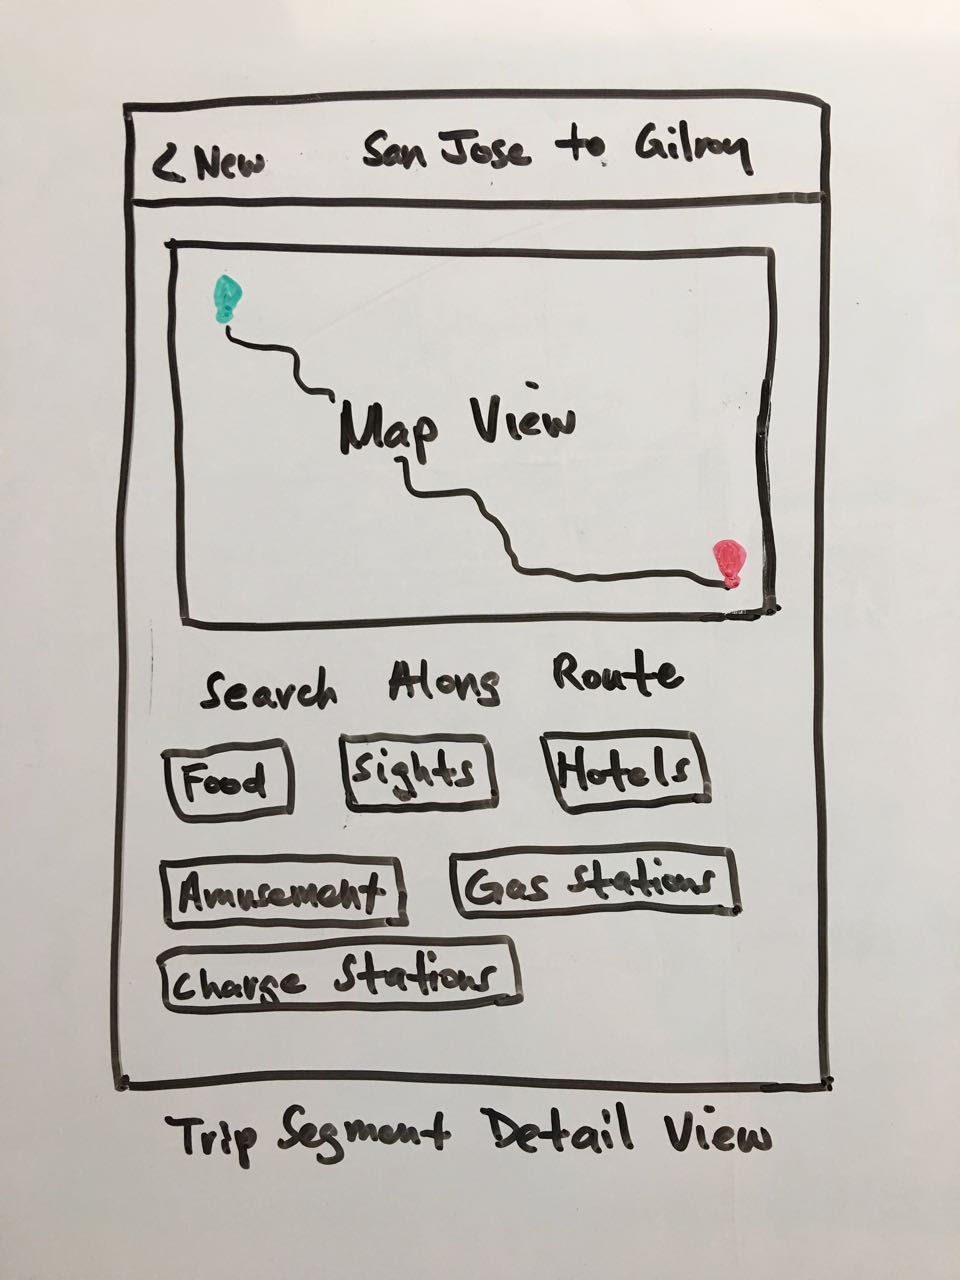 < New San Jose to Gilroy
Map View
Search Along Route
Food Sights Hotels
Amusement Gas Stations
Charge Stations
Trip Segment Detail View